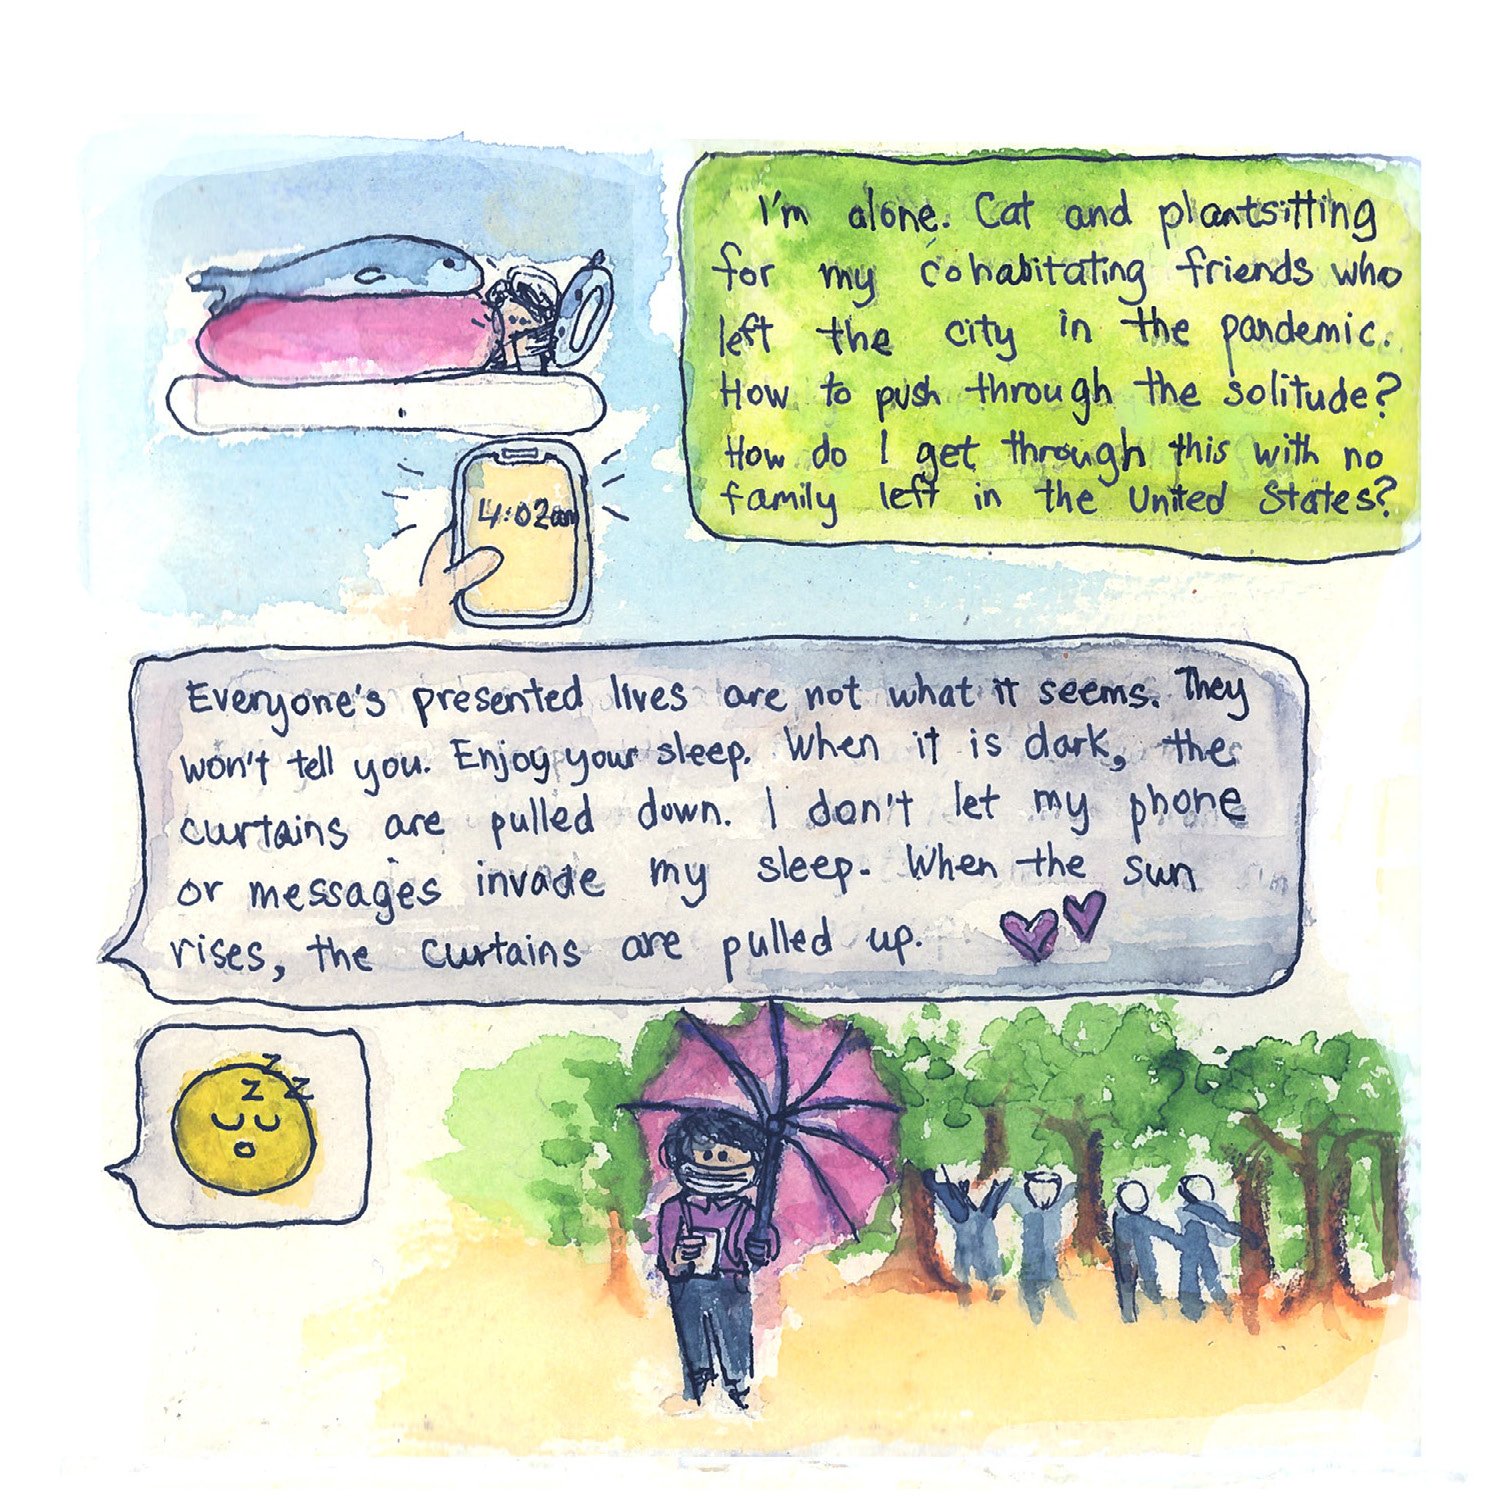 I'm alone. Cat and plantsitting
for my cohabitating friends who
left the city in the pandemic.
How to push through the solitude?
How do I get through this with no
family left in the United States?
4:02am
Everyone's presented lives are not what it seems. They
won't tell you. Enjoy your sleep. When it is dark, the
curtains are pulled down. I don't let my phone
or messages invade my sleep. When the sun
rises, the curtains are pulled up.
z z z